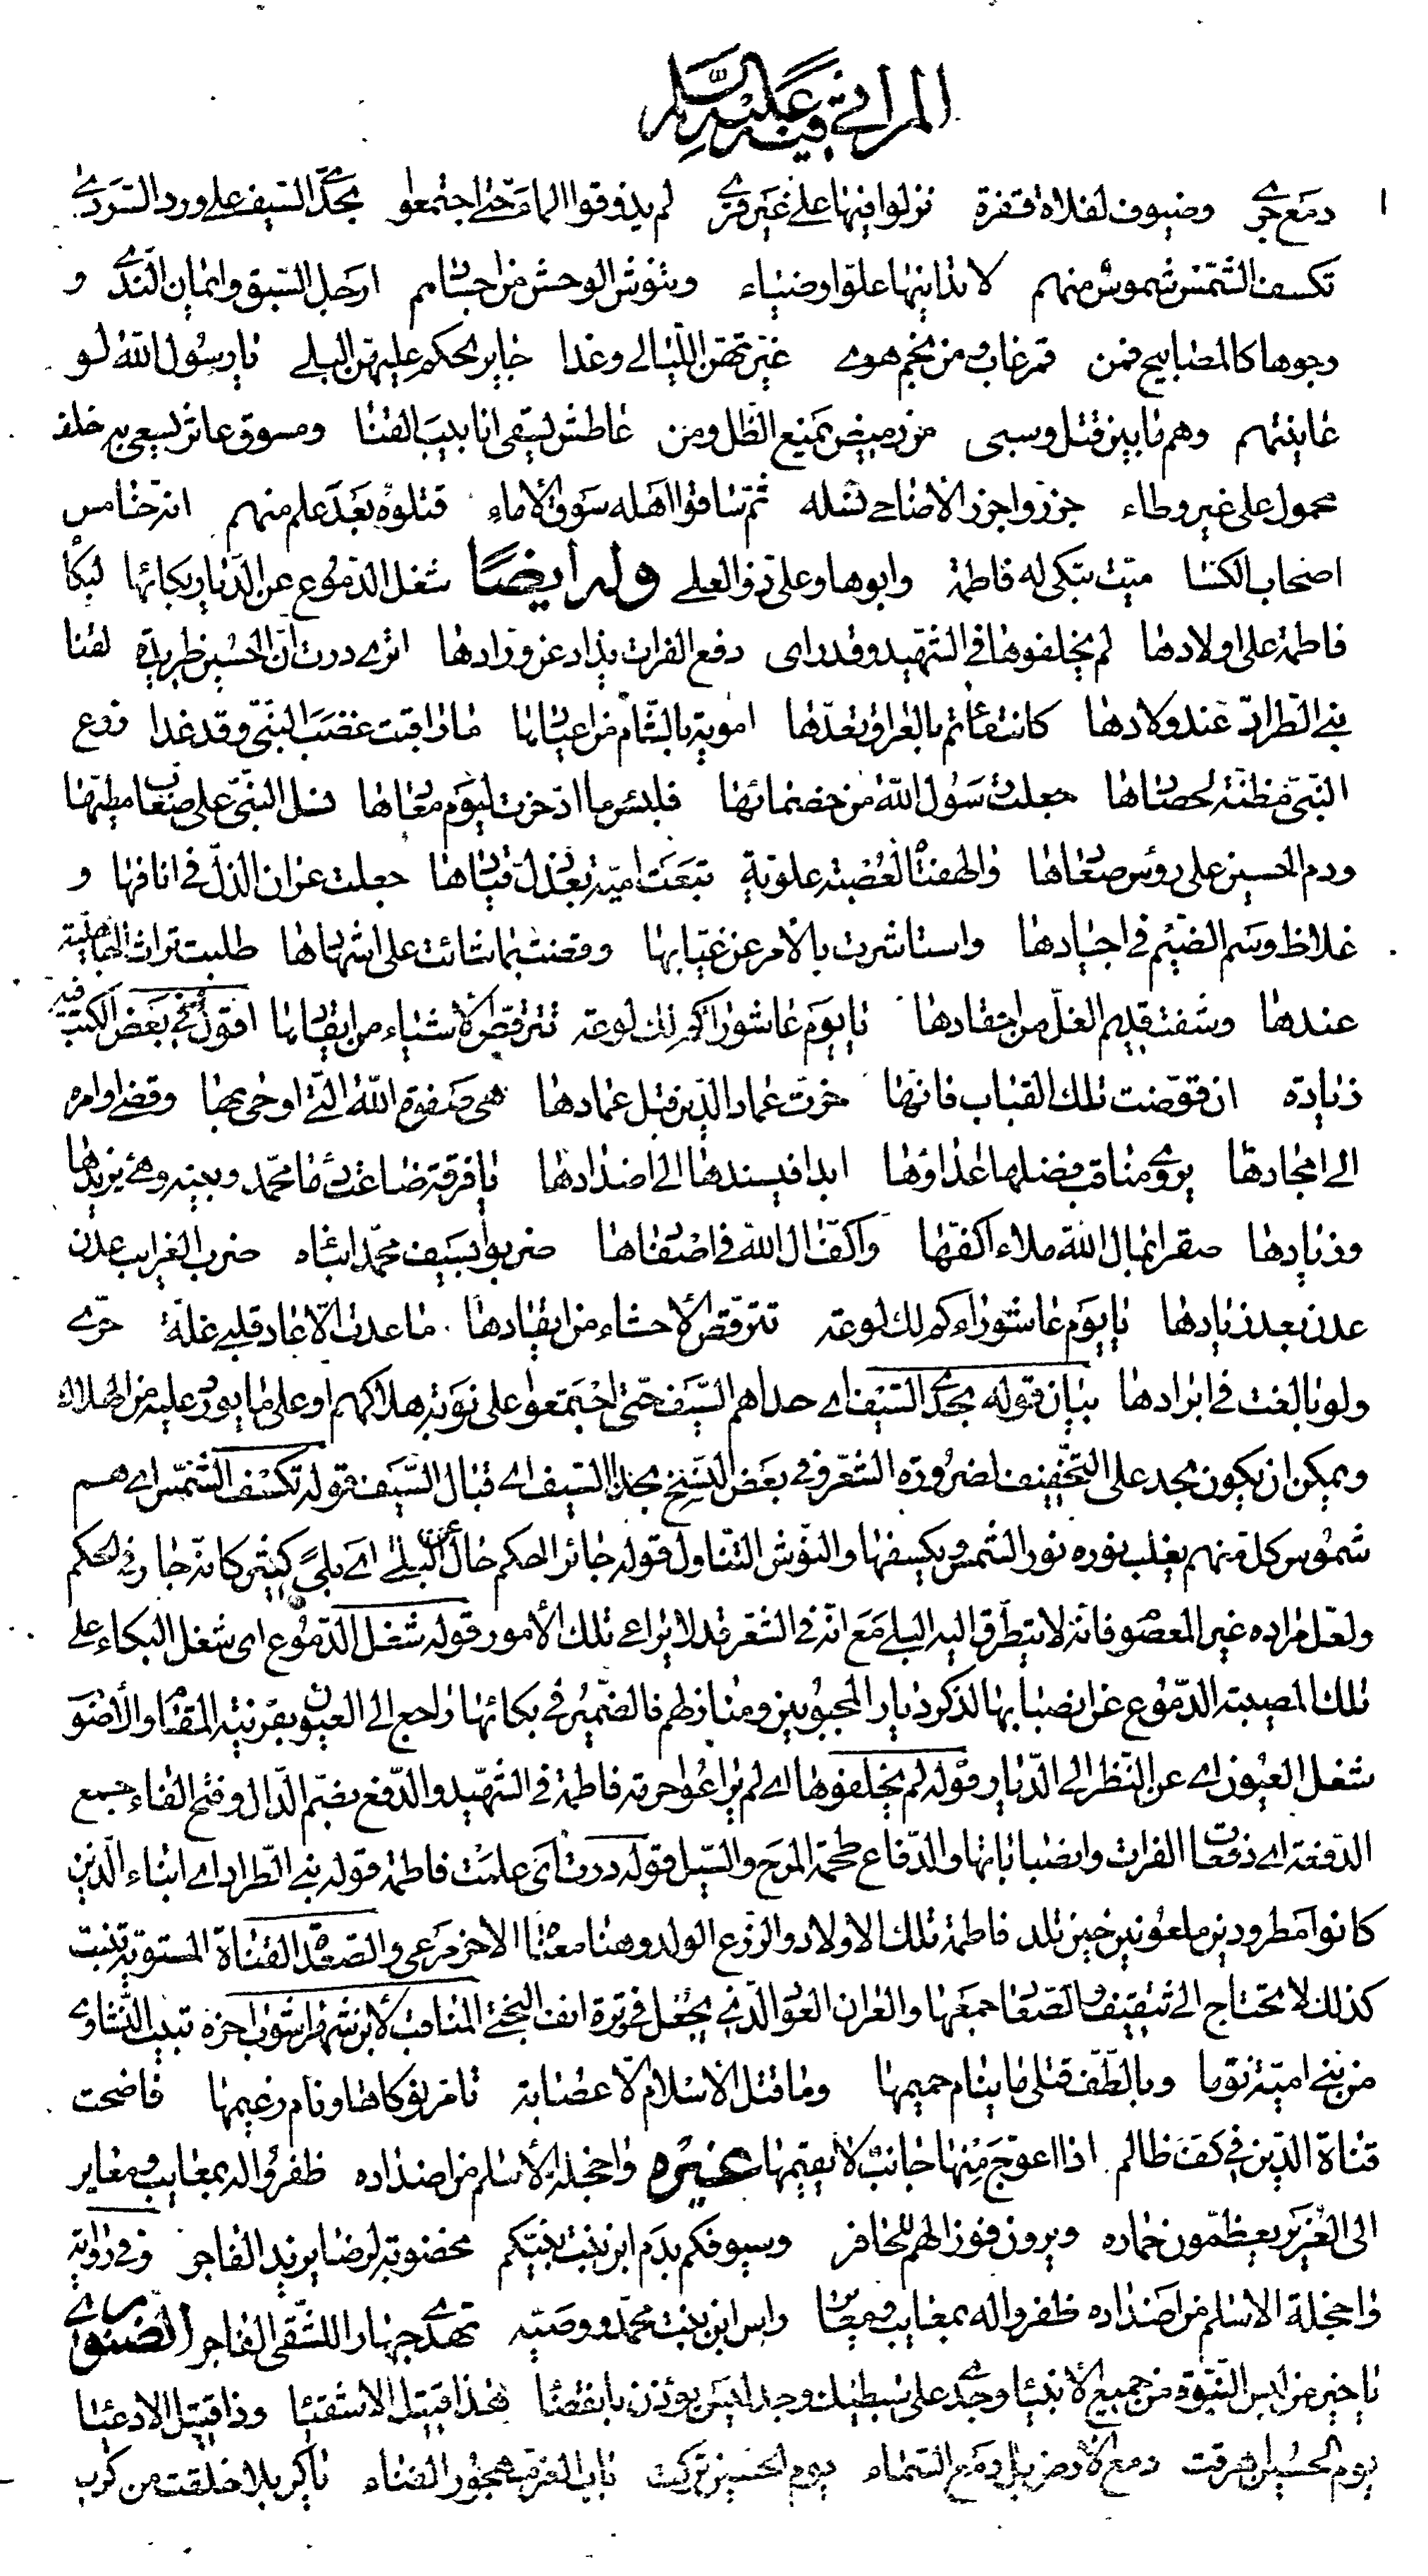 المراثي فيه عليه السلام
دمع جرى وضيوف لفلاة قفرة نزلوا فيها على غير قرى لم يذوقوا الماء حتى اجتمعوا بحدى السيف على ورد الردى
تكسف الشمس شموس منهم لا تدانيها علوا وضياء وتنوش الوحش من اجسادهم ارجل السبق وايمان الندى و
وجوها كالمصابيح فمن قمر غاب ومن نجم هوى غيرتهن الليالي وغدا جاير الحكم عليهن البلى يا رسول الله لو
عاينتهم وهم ما بين قتل وسبى من رميض يمنع الظل ومن عاطش يسقى انابيب القنا ومسوق عاثر يسعى به خلف
محمول على غير وطاء جزروا جزر الاضاحي نسله ثم ساقوا اهله سوق الاماء قتلوه بعد علم منهم انه خامس
اصحاب الكسا ميت تبكي له فاطمة وابوها وعلي ذو العلى وله ايضا شغل الدموع عن الديار بكائها لبكا
فاطمة على اولادها لم يخلفوها في الشهيد وقد راى دفع الفرات يذاد عن ورادها اترى درت ان الحسين طريدة لقنا
بني الطراد عند ولادها كانت مآتم بالعراق تعدها اموية بالشام من اعيادها ما راقبت غضب النبي وقد غدا زرع
النبي مظنة لحصادها جعلت رسول الله من خصمائها فلبئس ما ادخرت ليوم معادها نسل النبي على صعاب مطيها
ودم الحسين على رؤس صعادها والهفتا لعصبة علوية تبعت امية بعد ذل قيادها جعلت عران الذل في انافها و
غلاظ وسم الضيم في اجيادها واستاثرت بالامر عن غيابها وقضت بما شائت على اشهادها طلبت تراث الجاهلية
عندها وشفت قديم الغل من احقادها يا يوم عاشورا كم لك لوعة تترقص الاحشاء من ايقادها اقول في بعض الكتب فيه
زيادة ان قوضت تلك القباب فانها خرت عماد الدين قبل عمادها هي صفوة الله التي اوحى بها وقضى اوامره
الى امجادها يروي مناقب فضلها اعداؤها ابدا فيسندها الى اضدادها يا فرقة ضاعت دماء محمد وبنيه بين يزيدها
وزيادها صفرا بمال الله ملاء اكفها واكف ال الله في اصفادها ضربوا بسيف محمد ابناءه ضرب الغرايب عدن
عدن بعد زيادها يا يوم عاشوراء كم لك لوعة تترقص الاحشاء من ايقادها ما عدت الا عاد قلبي غلة حرى
ولو بالغت في ابرادها بيان قوله بحدى السيف اى حداهم السيف حتى اجتمعوا على نوبة هلاكهم او على ما يورد عليه من الهلاك
ويمكن ان يكون بحد على التخفيف لضرورة الشعر وفي بعض النسخ بحذا السيف اى قبال السيف قوله تكسف الشمس اى هم
شموس كل منهم يغلب نوره نور الشمس ويكسفها والنوش التناول قوله جائر الحكم حال عن البلى اى بلى كثير كانه جار في الحكم
ولعل مراده غير المعصوم فانه لا يتطرق اليه البلى مع انه في الشعر قد لا يراعى تلك الامور قوله شغل الدموع اى شغل البكاء على
تلك المصيبة الدموع عن انصبابها لذكر ديار المحبوبين ومنازلهم فالضمير في بكائها راجع الى العيون بقرينة المقام والاضو
شغل العيون اى عن النظر الى الديار قوله لم يخلفوها اى لم يراعوا حرمة فاطمة في الشهيد والدفع بضم الدال وفتح الفاء جمع
الدفعة اى دفعات الفرات وانصباباتها والدفاع طحمة الموج والسيل قوله درت اى علمت فاطمة قوله بني الطراد اى ابناء الذين
كانوا مطرودين ملعونين حين تلد فاطمة تلك الاولاد والزرع الولد وهنا معناه الاخر مرعي والصعدة القناة المستوية تنبت
كذلك لا تحتاج الى تثقيف والصعاد جمعها والعران العود الذي يجعل في وترة انف البختي المناقب لابن شهراشوب اخزه تبيت النشاوى
من بني امية نوما وبالطف قتلى ما ينام حميمها وما قتل الاسلام الا عصابة تامر نوكاها ونام زعيمها فاضحت
قناة الدين في كف ظالم اذا اعوج منها جانب لا يقيمها غيره واخجلة الاسلام من اضداده ظفروا له بمعايب ومعاير
ال العزير يعظمون حماره ويرون فوزا لهم للحافر وسيوفكم بدم ابن بنت نبيكم مخضوبة لرضا يزيد الفاجر وفي رواية
واخجلة الاسلام من اضداده ظفروا له بمعايب ومعاير راس ابن بنت محمد ووصيه تهدى جهارا للشقي الفاجر الصنوبري
يا خير من لبس النبوة من جميع الانبيا وجدي على سبطيك وجد ليس يؤذن بانقضا هذا قتيل الاشقيا وذا قتيل الادعيا
يوم الحسين هرقت دمع الارض بل دمع السماء يوم الحسين تركت باب العز مهجور الفناء يا كربلا خلقت من كرب